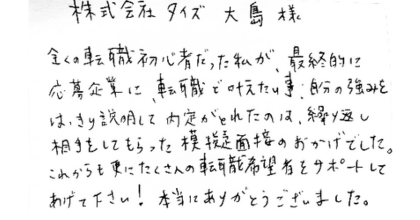 株式会社タイズ 大島様
全くの転職初心者だった私が、最終的に
応募企業に、転職で叶えたい事、自分の強みを
はっきり説明して内定がとれたのは、繰り返し
相手をしてもらった模擬面接のおかげでした。
これからも更にたくさんの転職希望者をサポートして
あげて下さい！本当にありがとうございました。